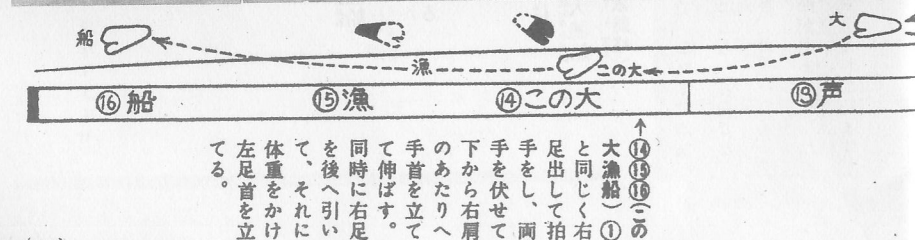 大
この大
漁
船
⑬声
⑭この大
⑮漁
⑯船
⑭⑮⑯(この
大漁船)①
と同じく右
足出して拍
手をし、両
手を伏せて
下から右肩
のあたりへ
手首を立て
て伸ばす。
同時に右足
を後へ引い
て、それに
体重をかけ
左足首を立
てる。